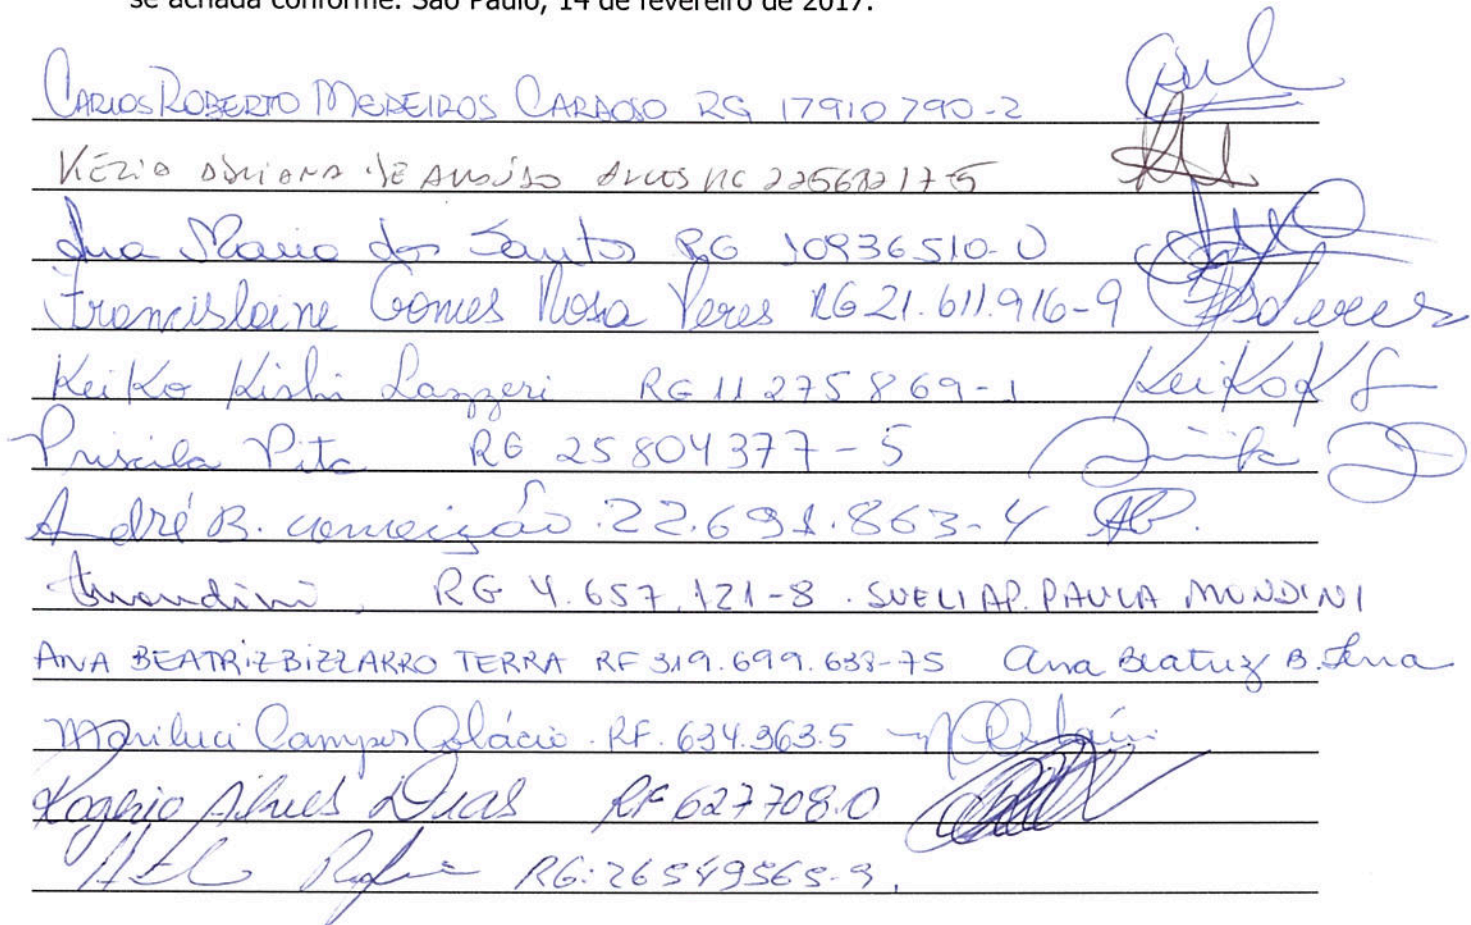 se achada conforme. São Paulo, 14 de fevereiro de 2017.
CARLOS ROBERTO MEDEIROS CARDOSO RG 17910790-2
KÉZIA ADRIANA DE ALVES RG
Ana Maria dos Santos RG 10936510-0
Francislaine Gomes Rosa Peres RG 21.611.916-9
Keiko Kishi Lazzeri RG 11275869-1 Keiko K L
Priscila Pita RG 25804377-5
André B. conceição. 22.691.863-4 AB.
Smondini, RG 4.657.121-8. SUELI AP. PAULA MONDINI
ANA BEATRIZ BIZZARRO TERRA RF 319.699.638-75 Ana Beatriz B. Terra
Mariluci Campos Colácio. RF. 634.363.5
Rogério Alves Dias RF 627708.0
RG: 26549565-9.